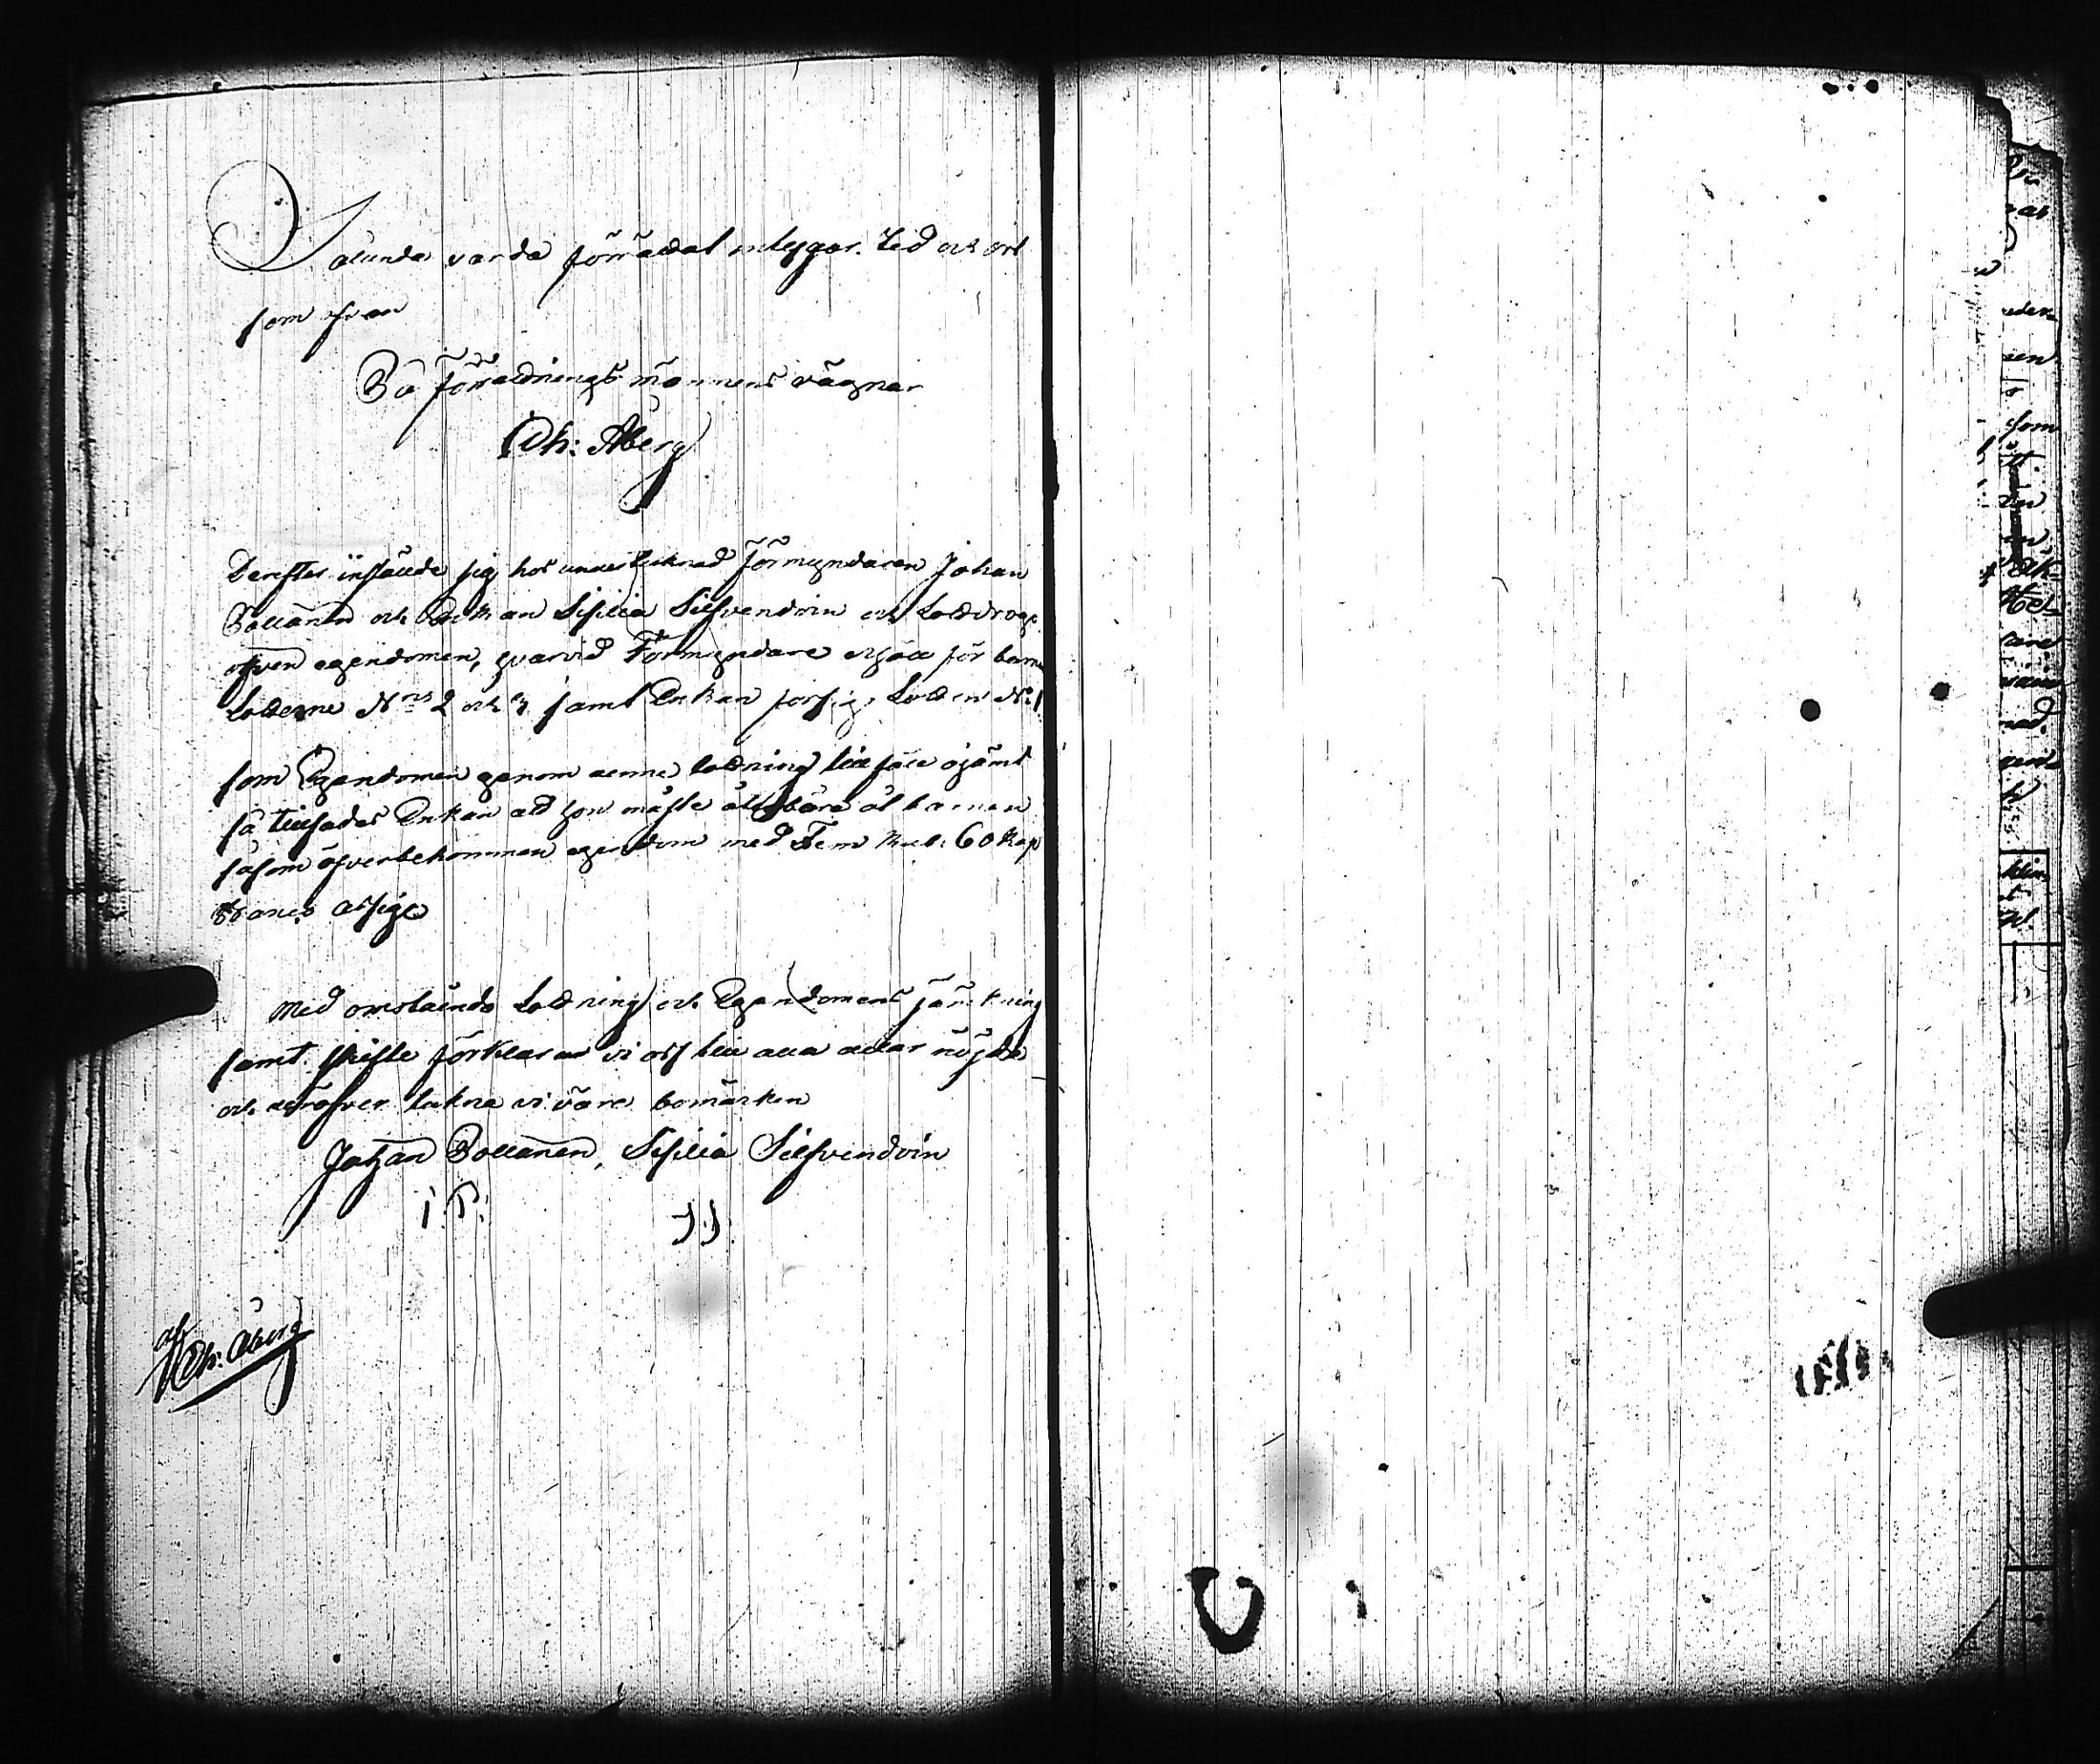 Sålunda varda förrättat intygar. Tid och ort
som ofvan
På förrättningsmännens vägnar
Ch: Åberg
Derefter instälde sig hos undertecknad Förmyndaren Johan
Pollänen och Enkan Sisilia Silfvendoin och Lottdroge
ofven egendomen, hvarvid Förmyndare erhöll för barne
Lotterne N:ris 2 och 3 samt Enkan för sig, Lotten N:1
som Egendomen genom denne lottning tillföll ojämt
så tillsades Enkan att hon måste återbära åt barnen
såsom öfverbekommen egendom med Fem Rub: 60 Kop
Med omstående Lottning och Egendomens jämkning
samt skifte förklarar vi oss till alla delar nöjde
och deröfver tekna vi våre bomärken
Johan Pollänen, Sisilia Silfvendoin
I.P. S.S.
af
Ch: Åberg